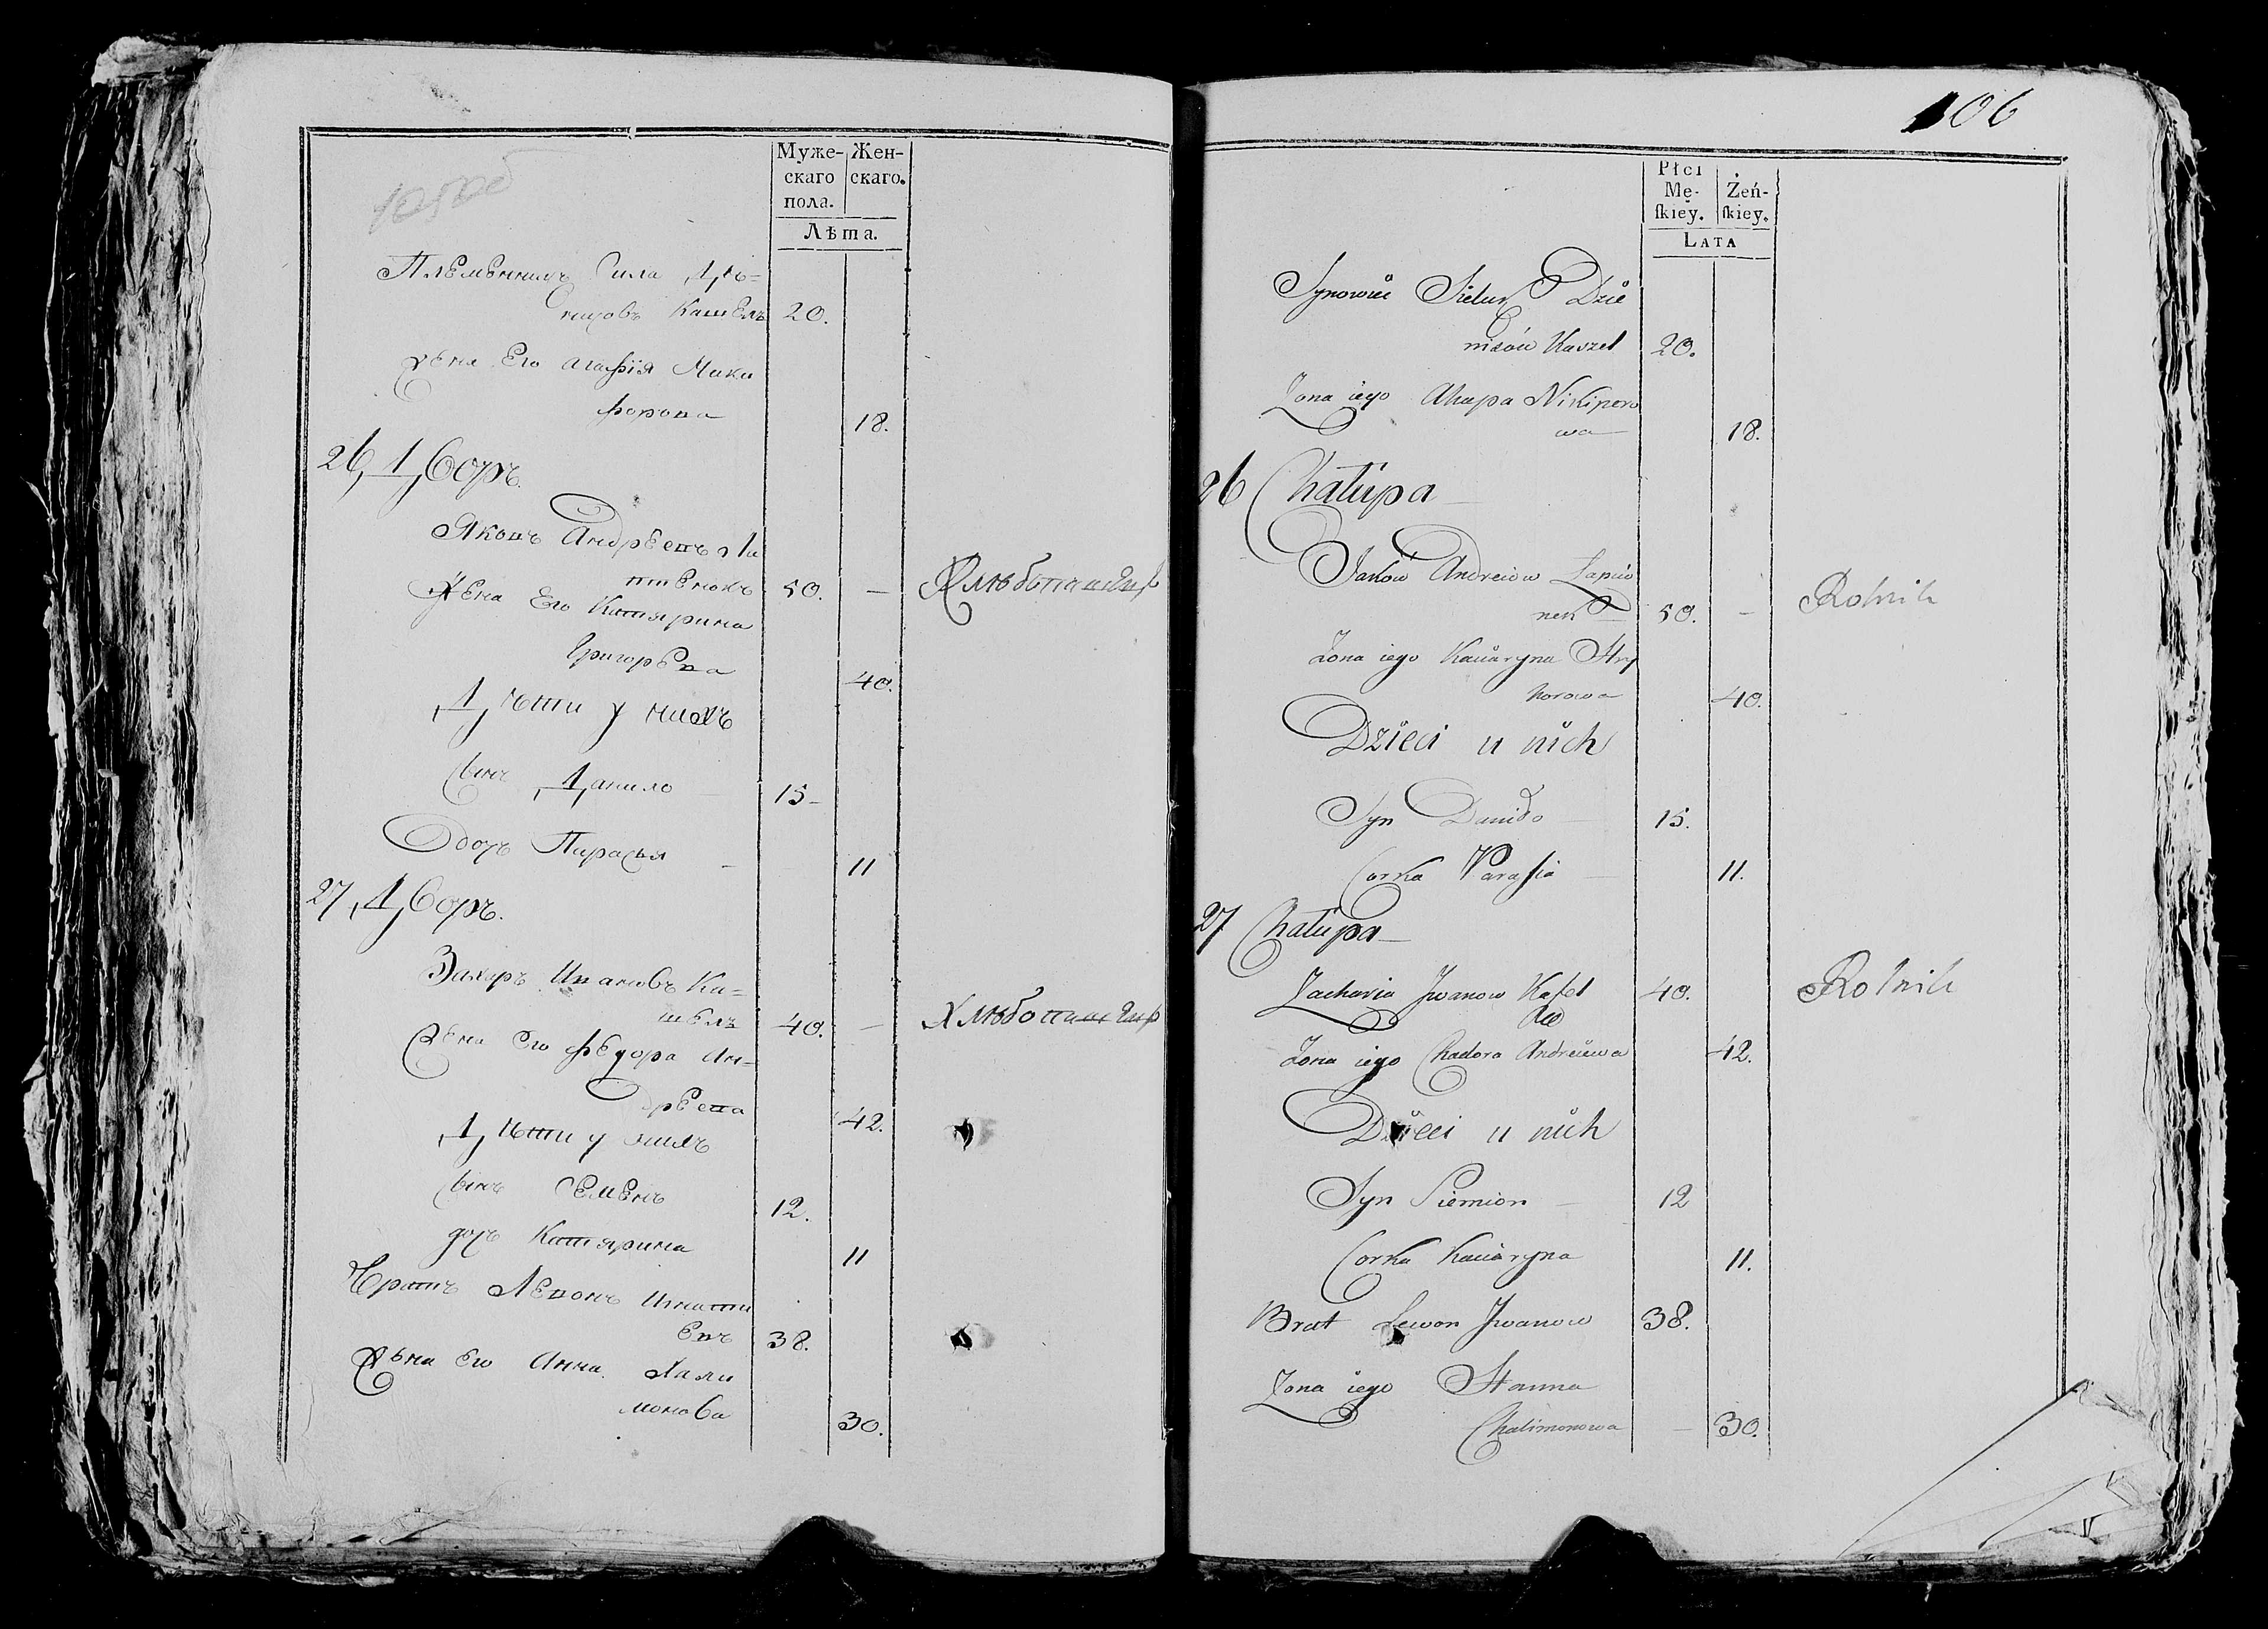 Муже-
скаго
пола.
Жен-
скаго.
Лѣта.
Племенникъ Сила Дѣ-
нисовъ Кашель 20.
Жена Его Агафія Мики
форова 18.
26 Дворъ.
Яковъ Андреевъ Ла
птенокъ 50. —
Жена Его Катярина
Григорева 40.
Дѣти у нихъ
Сынъ Данило 15–
Дочь Парасья – 11
27 Дворъ.
Захаръ Ивановъ Ка=
шель 40. —
Жена Его Федора Ан=
дреева 42.
Дѣти у нихъ
Сынъ Семенъ 12.
дочь Катярина 11
Братъ Левонъ Игнати
евъ 38.
Жена Его Анна Хали
монова 30.
106
Płci
Mę-
ſkiey.
Żeń-
ſkiey.
LATA
Synowiec Dzie
nisów Kaszel 20.
Zona iego Ahapa Nikiporo
wa 18.
26 Chałupa
Jaków Andreiow Lapcio
nek 50. –
Zona iego Kaciaryna Hry
horowa 40.
Dzieci u nich
Syn Daniło 15.
Corka Parasia 11.
27 Chałupa
Zacharia Jwanow Kaszel 40.
Zona iego Chadora Andreiewa 42.
Dzieci u nich
Syn Siemion 12
Corka Kaciaryna 11.
Brat Lewon Jwanow 38.
Zona iego Hanna
Chalimonowa – 30.
Rolnik
Rolnik